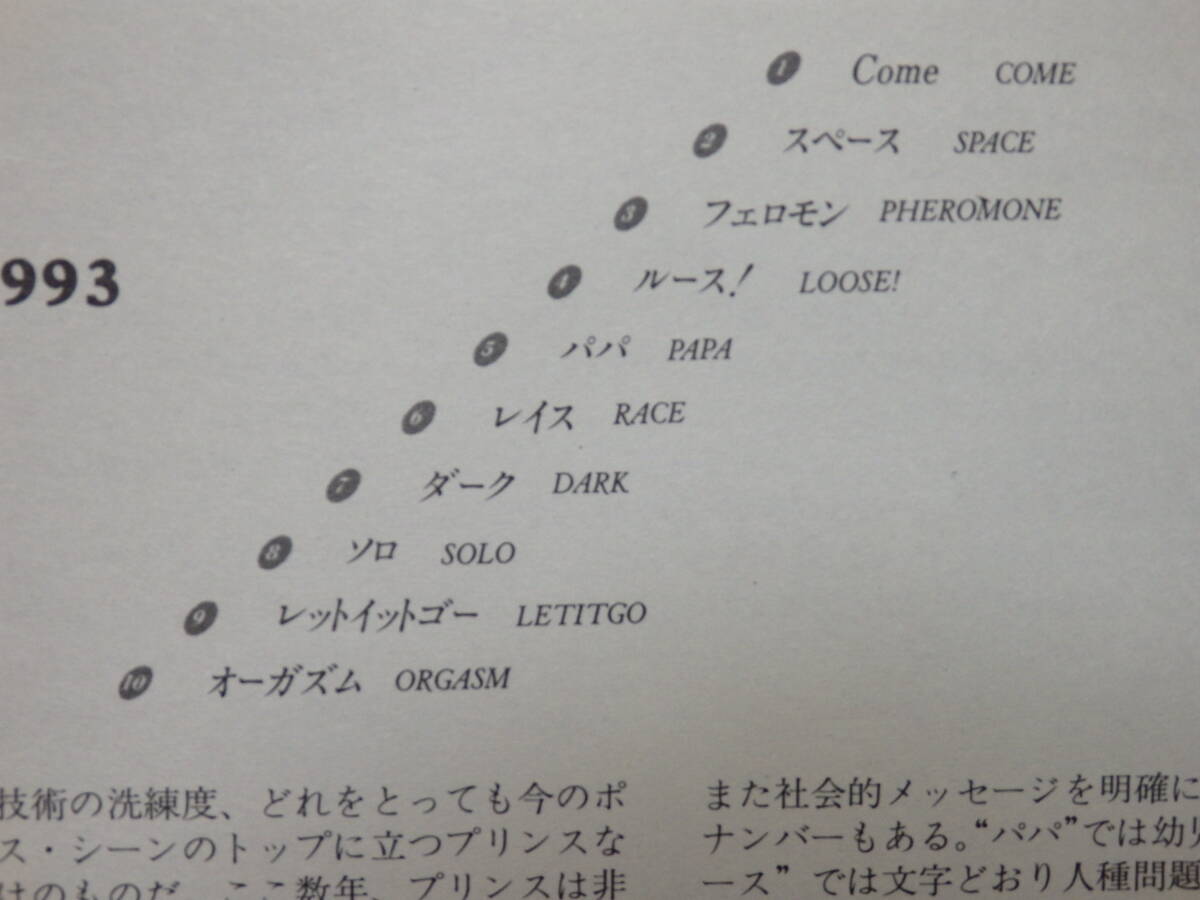 ❶ Come COME
❷ スペース SPACE
❸ フェロモン PHEROMONE
993
❹ ルース! LOOSE!
❺ パパ PAPA
❻ レイス RACE
❼ ダーク DARK
❽ ソロ SOLO
❾ レットイットゴー LETITGO
❿ オーガズム ORGASM
技術の洗練度、どれをとっても今のポ
ス・シーンのトップに立つプリンスな
けのものだ。ここ数年、プリンスは非
また社会的メッセージを明確に
ナンバーもある。“パパ”では幼児
ース”では文字どおり人種問題